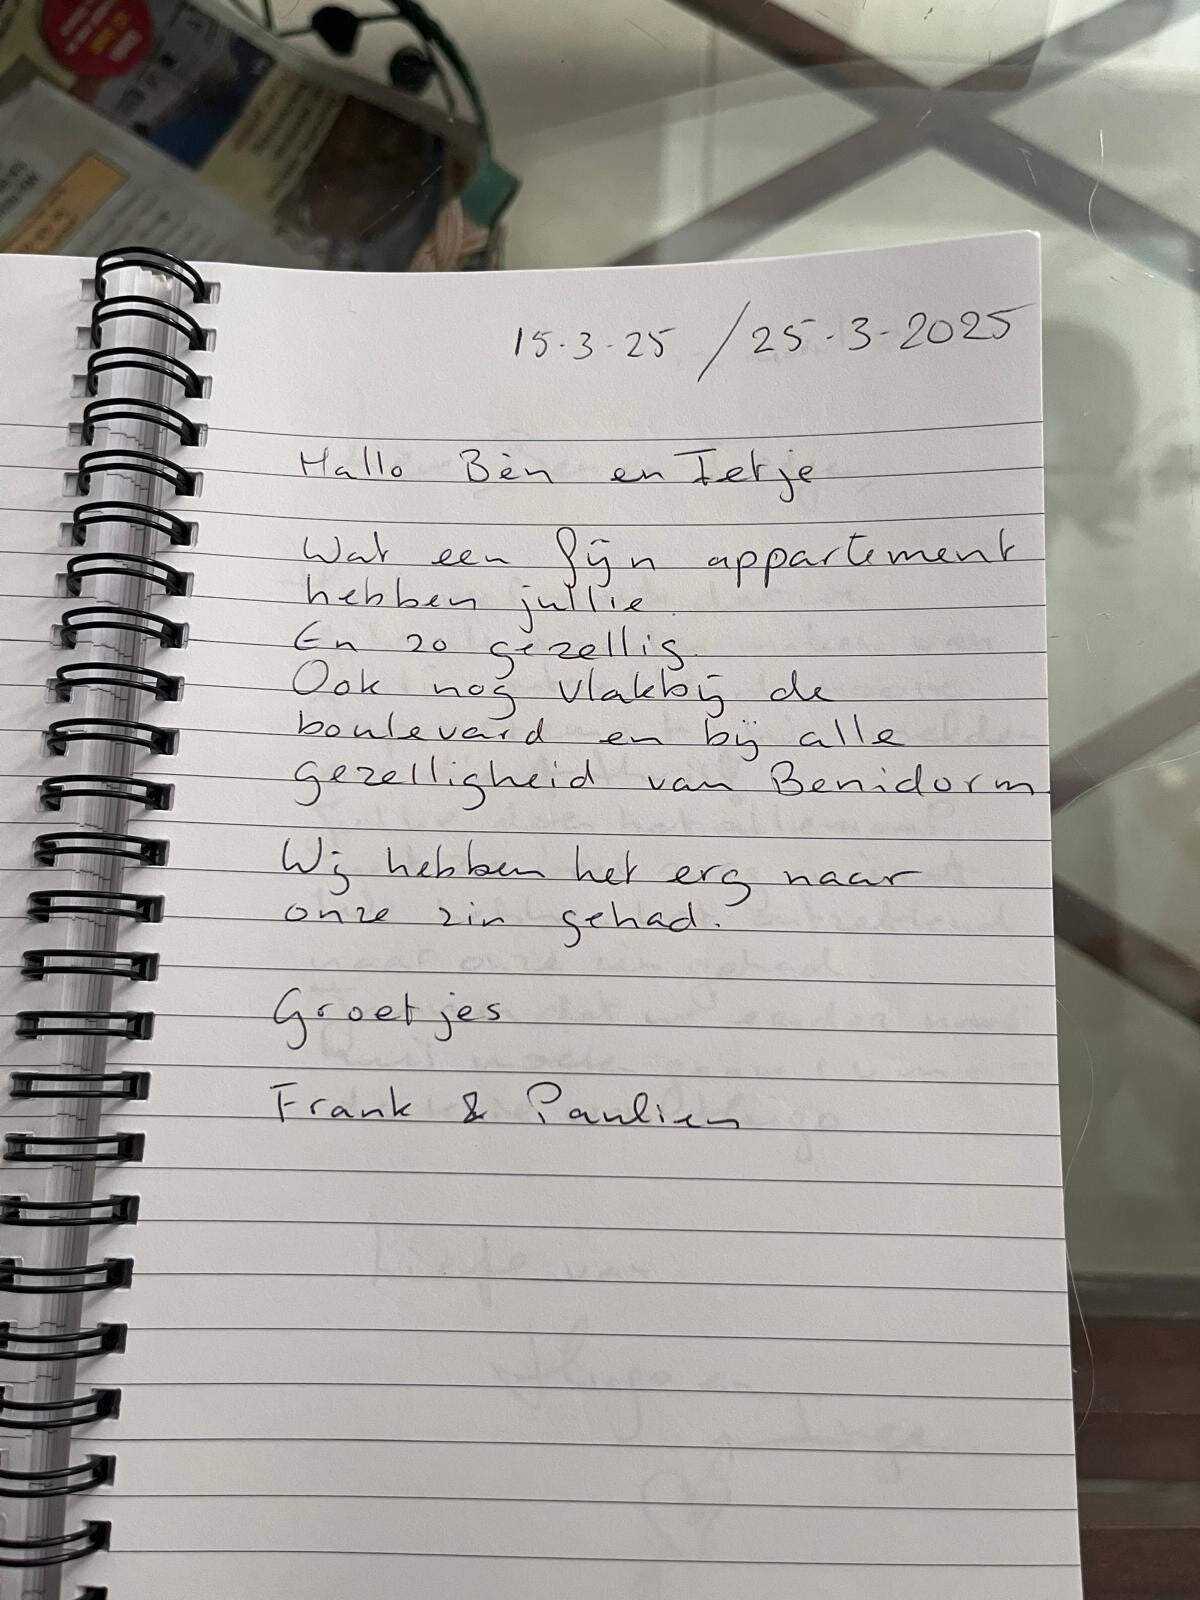 15.3.25 / 25.3-2025
Hallo Bèn en Ietje
Wat een fijn appartement
hebben jullie.
En zo gezellig.
Ook nog vlakbij de
boulevard en bij alle
gezelligheid van Benidorm
Wij hebben het erg naar
onze zin gehad.
Groetjes
Frank & Paulien